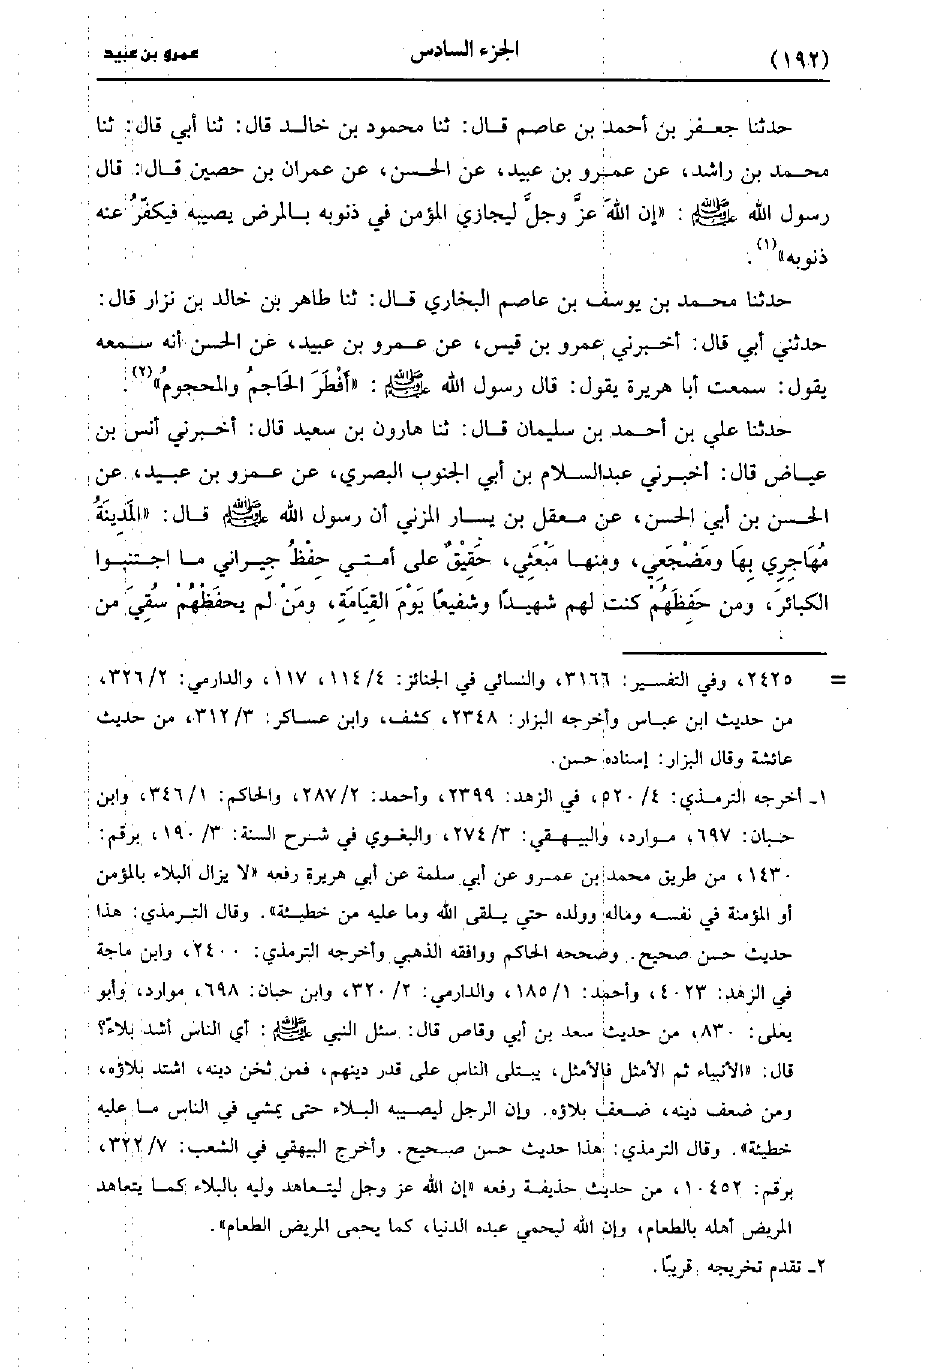 (١٩٢) الجزء السادس عمرو بن عبيد
حدثنا جعفر بن أحمد بن عاصم قال: ثنا محمود بن خالد قال: ثنا أبي قال: ثنا
محمد بن راشد، عن عمرو بن عبيد، عن الحسن، عن عمران بن حصين قال: قال
رسول الله ﷺ: «إن اللهَ عزَّ وجلَّ ليجازي المؤمن في ذنوبه بالمرض يصيبه فيكفّرُ عنه
ذنوبه»(١).
حدثنا محمد بن يوسف بن عاصم البخاري قال: ثنا طاهر بن خالد بن نزار قال:
حدثني أبي قال: أخبرني عمرو بن قيس، عن عمرو بن عبيد، عن الحسن أنه سمعه
يقول: سمعت أبا هريرة يقول: قال رسول الله ﷺ: «أَفْطَرَ الحَاجِمُ والمحجومُ»(٢).
حدثنا علي بن أحمد بن سليمان قال: ثنا هارون بن سعيد قال: أخبرني أنس بن
عياض قال: أخبرني عبدالسلام بن أبي الجنوب البصري، عن عمرو بن عبيد، عن
الحسن بن أبي الحسن، عن معقل بن يسار المزني أن رسول الله ﷺ قال: «المَدِينَةُ
مُهَاجِرِي بِهَا ومَضْجَعِي، ومنها مَبْعَثِي، حَقِيقٌ على أمتي حِفْظُ جيراني ما اجتنبوا
الكبائرَ، ومن حَفِظَهُمْ كنت لهم شهيدًا وشفيعًا يَوْمَ القِيَامَةِ، ومَنْ لم يحفَظْهُمْ سُقِيَ من
= ٢٤٢٥، وفي التفسير: ٣١٦٦، والنسائي في الجنائز: ٤/ ١١٤، ١١٧، والدارمي: ٢/ ٣٢٦،
من حديث ابن عباس وأخرجه البزار: ٢٣٤٨، كشف، وابن عساكر: ٣/ ٣١٢، من حديث
عائشة وقال البزار: إسناده حسن.
١ـ أخرجه الترمذي: ٤/ ٥٢٠م، في الزهد: ٢٣٩٩، وأحمد: ٢/ ٢٨٧، والحاكم: ١/ ٣٤٦، وابن
حبان: ٦٩٧، موارد، والبيهقي: ٣/ ٢٧٤، والبغوي في شرح السنة: ٣/ ١٩٠، برقم:
١٤٣٠، من طريق محمد بن عمرو عن أبي سلمة عن أبي هريرة رفعه «لا يزال البلاء بالمؤمن
أو المؤمنة في نفسه وماله وولده حتي يلقى الله وما عليه من خطيئة». وقال الترمذي: هذا
حديث حسن صحيح. وصححه الحاكم ووافقه الذهبي وأخرجه الترمذي: ٢٤٠٠، وابن ماجة
في الزهد: ٤٠٢٣، وأحمد: ١/ ١٨٥، والدارمي: ٢/ ٣٢٠، وابن حبان: ٦٩٨، موارد، وأبو
يعلى: ٨٣٠، من حديث سعد بن أبي وقاص قال: سئل النبي ﷺ: أي الناس أشد بلاءً؟
قال: «الأنبياء ثم الأمثل فالأمثل، يبتلى الناس على قدر دينهم، فمن ثخن دينه، اشتد بلاؤه،
ومن ضعف دينه، ضعف بلاؤه. وإن الرجل ليصيبه البلاء حتى يمشي في الناس ما عليه
خطيئة». وقال الترمذي: هذا حديث حسن صحيح. وأخرج البيهقي في الشعب: ٧/ ٣٢٢،
برقم: ١٠٤٥٢، من حديث حذيفة رفعه «إن الله عز وجل ليتعاهد وليه بالبلاء كما يتعاهد
المريض أهله بالطعام، وإن الله ليحمي عبده الدنيا، كما يحمى المريض الطعام».
٢ـ تقدم تخريجه قريبًا.